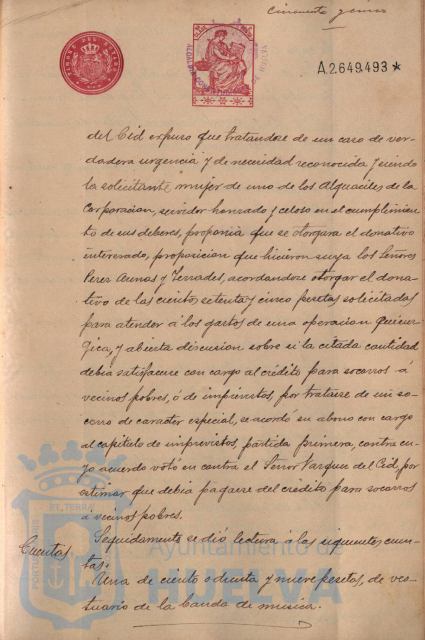 Cincuenta y cinco
TIMBRE DEL ESTADO
A2649493★
del Cid expuso que tratandose de un caso de ver-
dadera urgencia y de necesidad reconocida y siendo
la solicitante, mujer de uno de los Alguaciles de la
Corporacion, servidor honrado y celoso en el cumplimien-
to de sus deberes, proponia que se otorgara el donativo
interesado, proposicion que hicieron suya los Señores
Perez Arenas y Terrades, acordandose otorgar el dona-
tivo de las ciento setenta y cinco pesetas solicitadas
para atender á los gastos de una operacion quirur-
gica, y abierta discusion sobre si la citada cantidad
debia satisfacerse con cargo al crédito para socorros á
vecinos pobres, ó de imprevistos, por tratarse de un so-
corro de caracter especial, se acordó su abono con cargo
al capitulo de imprevistos, partida primera, contra cu-
yo acuerdo votó en contra el Señor Vazquez del Cid, por
estimar que debia pagarse del crédito para socorros
á vecinos pobres.
Cuentas Seguidamente se dió lectura á las siguientes cuen-
tas:
Una de ciento ochenta y nueve pesetas, de ves-
tuario de la banda de musica.
Ayuntamiento de
HUELVA